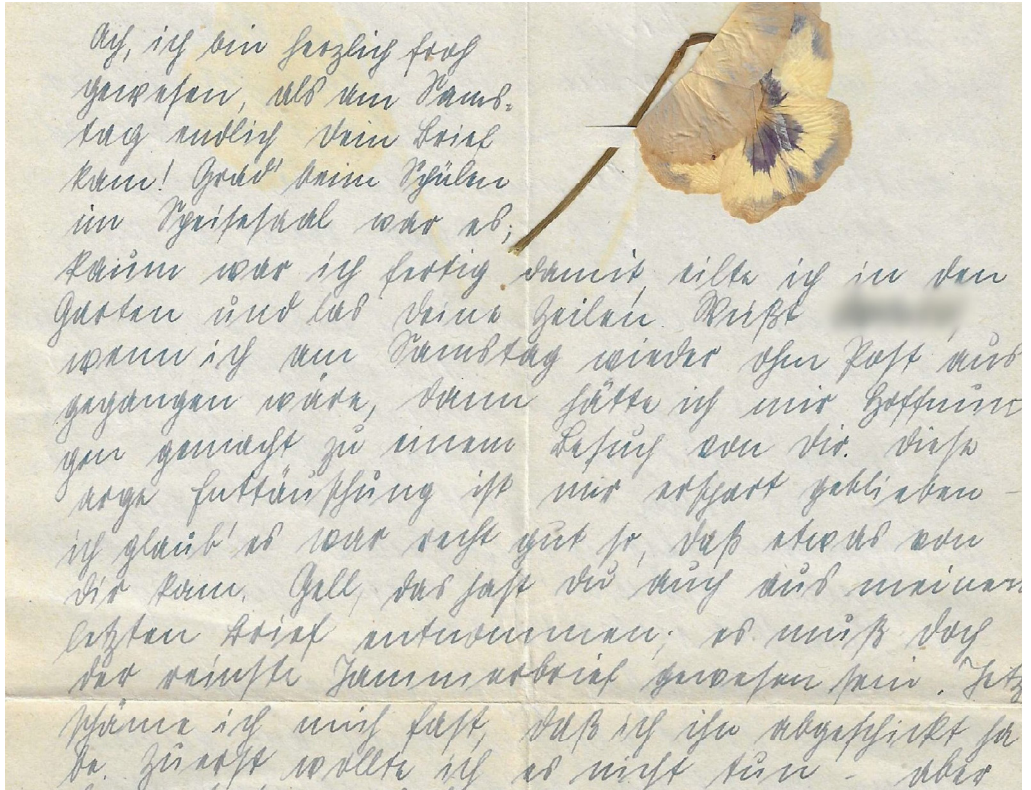 Ach, ich bin herzlich froh
gewesen, als am Sams-
tag endlich Dein Brief
kam! Grad' beim Spülen
im Speisesaal war es;
kaum war ich fertig damit, eilte ich in den
Garten und las Deine Zeilen. Weißt
wenn ich am Samstag wieder ohne Post aus
gegangen wäre, dann hätte ich mir Hoffnun
gen gemacht zu einem Besuch von Dir. Diese
arge Enttäuschung ist mir erspart geblieben -
ich glaub' es war recht gut so, daß etwas von
Dir kam. Gell, das hast Du auch aus meinem
letzten Brief entnommen; es muß doch
der reinste Jammerbrief gewesen sein. Jetzt
schäme ich mich fast, daß ich ihn abgeschickt ha
be. Zuerst wollte ich es nicht tun - aber